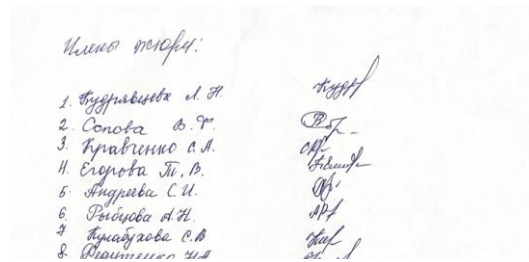 Члены жюри:
1. Кудрявцева Л. Н.
2. Сопова В. Ф.
3. Кравченко С. А.
4. Егорова Т. В.
5. Андреева С. И.
6. Рыбцова А. Н.
7 Кулабухова С. В
8.